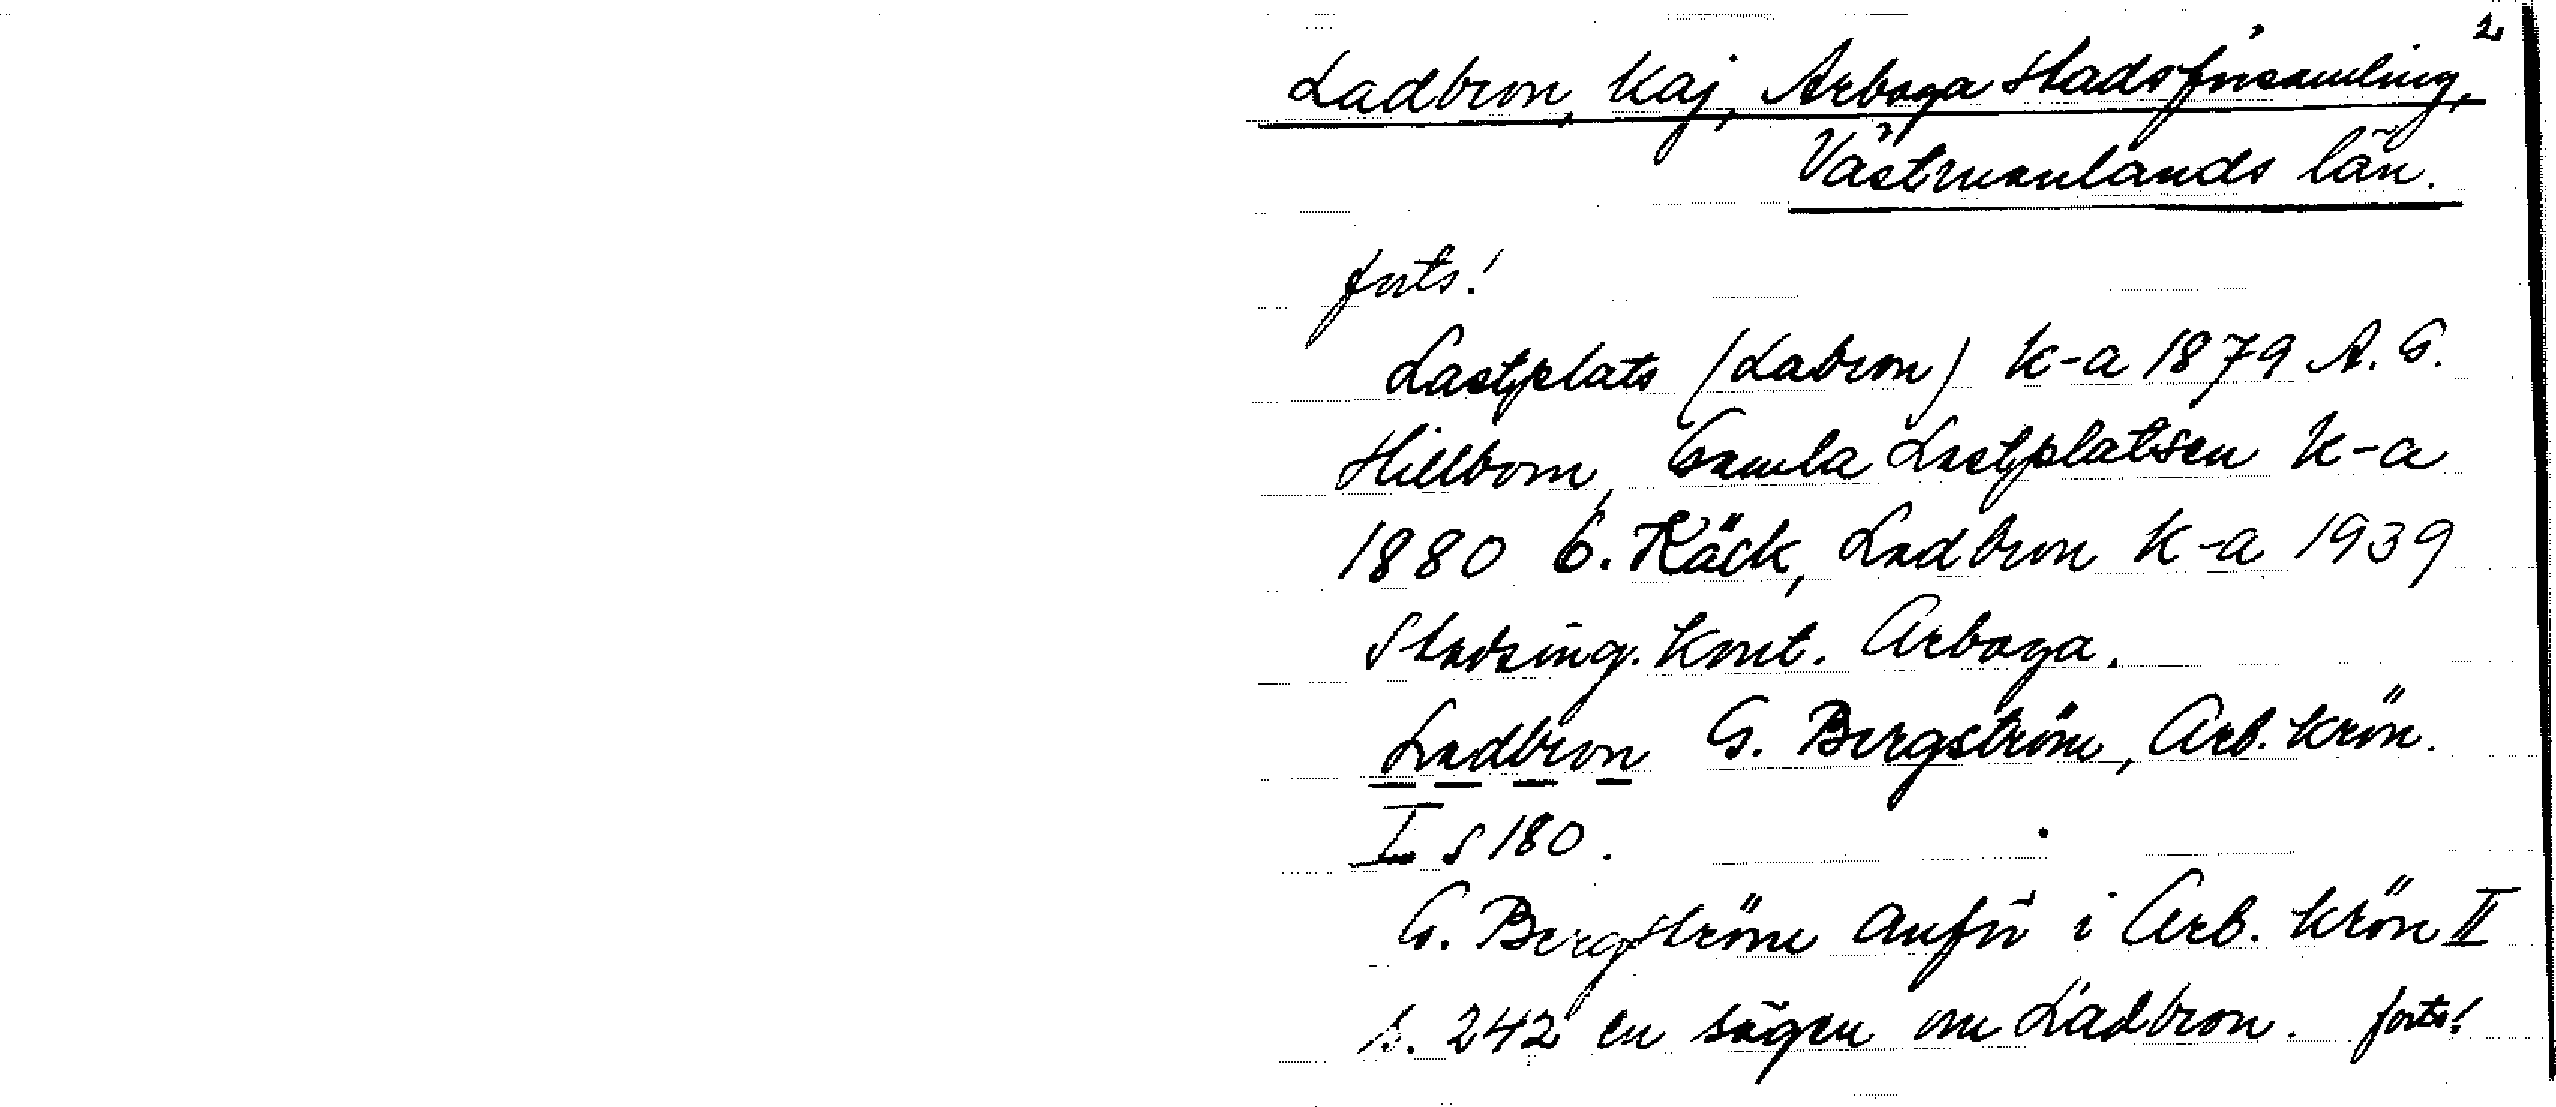 2
Ladbron, Kaj, Arboga Stadsförsamling,
Västmanlands län.
forts!
Lastplats (Labron) k-a 1879 A. G.
Hillbom, Gamla Lastplatsen k-a
1880 G. Käck, Ladbron k-a 1939
Stadsing. kont. Arboga.
Ladbron G. Bergström, Arb. krön.
I s 180.
G. Bergström anför i Arb. krön II
s. 242 en sägen om Ladbron. forts!